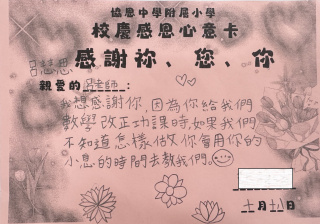 協恩中學附屬小學
校慶感恩心意卡
感謝祢、您、你
親愛的 老師：
我想感謝你，因為你給我們
數學改正功課時，如果我們
不知道怎樣做，你會用你的
小息的時間去教我們。